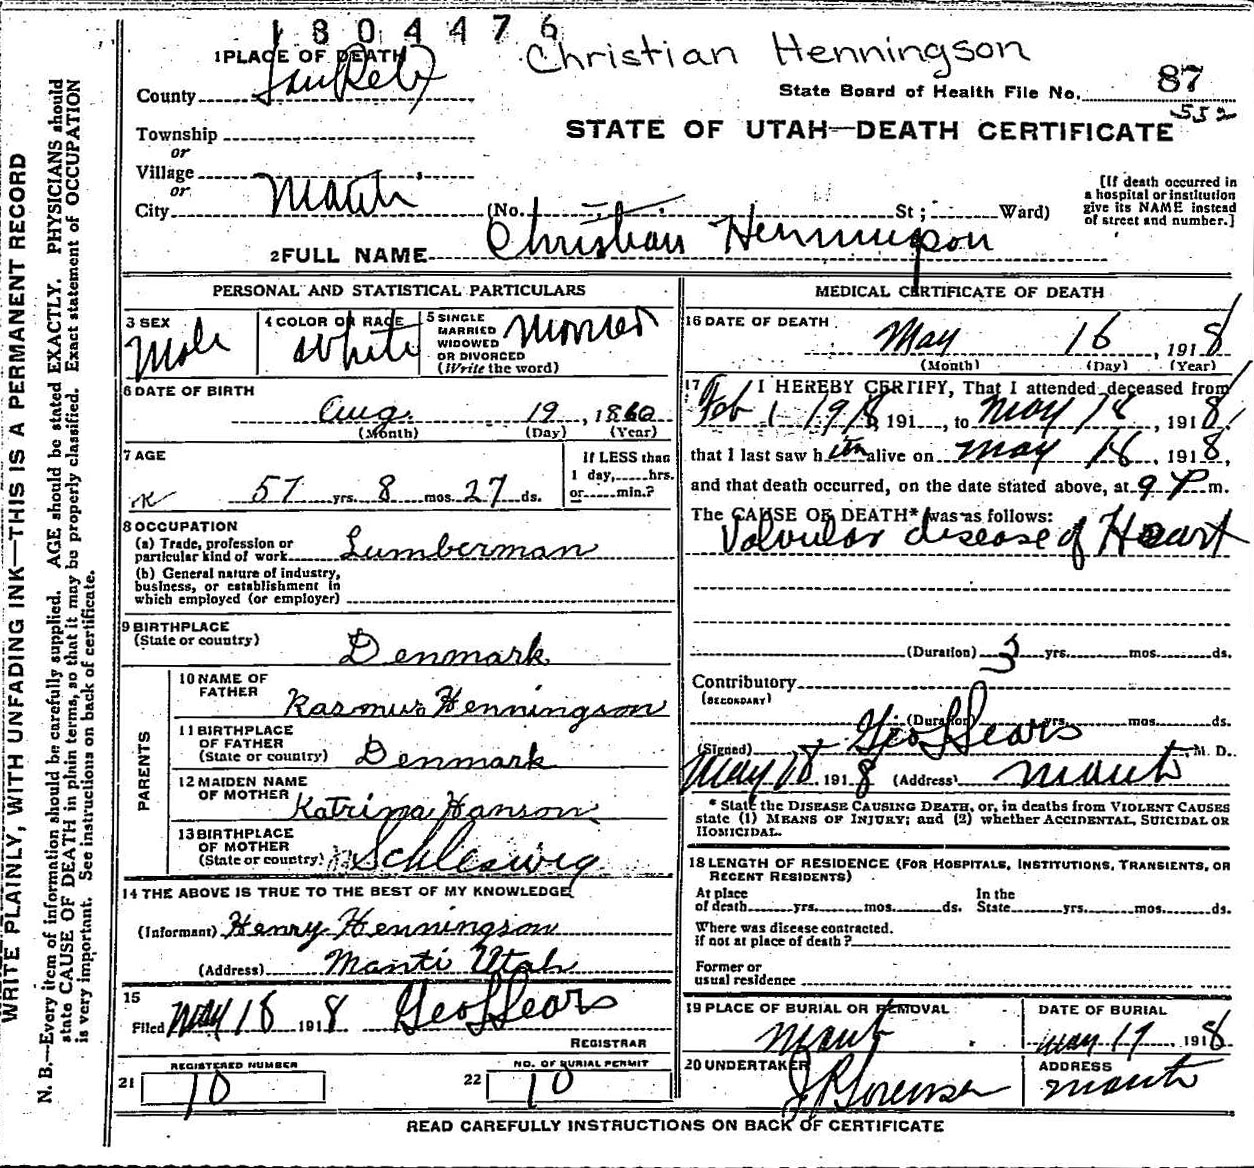 1804476
Christian Henningson
1 PLACE OF DEATH
County SanPete
State Board of Health File No. 87
552
Township
or
Village
or
City Manti
STATE OF UTAH—DEATH CERTIFICATE
(No. St; Ward)
[If death occurred in
a hospital or institution
give its NAME instead
of street and number.]
2 FULL NAME Christian Henningson
PERSONAL AND STATISTICAL PARTICULARS
3 SEX Male
4 COLOR OR RACE White
5 SINGLE
MARRIED
WIDOWED
OR DIVORCED
(Write the word) Married
6 DATE OF BIRTH
Aug. 19, 1860
(Month) (Day) (Year)
7 AGE
57 yrs. 8 mos. 27 ds.
If LESS than
1 day, hrs.
or min.?
8 OCCUPATION
(a) Trade, profession or
particular kind of work Lumberman
(b) General nature of industry,
business, or establishment in
which employed (or employer)
9 BIRTHPLACE
(State or country) Denmark
PARENTS
10 NAME OF
FATHER Rasmus Henningson
11 BIRTHPLACE
OF FATHER
(State or country) Denmark
12 MAIDEN NAME
OF MOTHER Katrina Hanson
13 BIRTHPLACE
OF MOTHER
(State or country) Schleswig
14 THE ABOVE IS TRUE TO THE BEST OF MY KNOWLEDGE
(Informant) Henry Henningson
(Address) Manti Utah
15
Filed May 18 1918 Geo L Sears
REGISTRAR
21 REGISTERED NUMBER 10
22 NO. OF BURIAL PERMIT 10
MEDICAL CERTIFICATE OF DEATH
16 DATE OF DEATH
May 16, 1918
(Month) (Day) (Year)
17 I HEREBY CERTIFY, That I attended deceased from
Feb 1 1918, 191 , to May 16, 1918,
that I last saw him alive on May 16, 1918,
and that death occurred, on the date stated above, at 9 P m.
The CAUSE OF DEATH* was as follows:
Valvular disease of Heart
(Duration) 3 yrs. mos. ds.
Contributory
(SECONDARY)
(Duration) yrs. mos. ds.
(Signed) Geo L Sears M. D.
May 18 1918 (Address) Manti
* State the DISEASE CAUSING DEATH, or, in deaths from VIOLENT CAUSES
state (1) MEANS OF INJURY; and (2) whether ACCIDENTAL, SUICIDAL OR
HOMICIDAL.
18 LENGTH OF RESIDENCE (FOR HOSPITALS, INSTITUTIONS, TRANSIENTS, OR
RECENT RESIDENTS)
At place
of death yrs. mos. ds.
In the
State yrs. mos. ds.
Where was disease contracted.
if not at place of death?
Former or
usual residence
19 PLACE OF BURIAL OR REMOVAL
Manti
DATE OF BURIAL
May 19 1918
20 UNDERTAKER
J P Sorensen
ADDRESS
Manti
READ CAREFULLY INSTRUCTIONS ON BACK OF CERTIFICATE
WRITE PLAINLY, WITH UNFADING INK—THIS IS A PERMANENT RECORD
N. B.—Every item of information should be carefully supplied. AGE should be stated EXACTLY. PHYSICIANS should
state CAUSE OF DEATH in plain terms, so that it may be properly classified. Exact statement of OCCUPATION
is very important. See instructions on back of certificate.